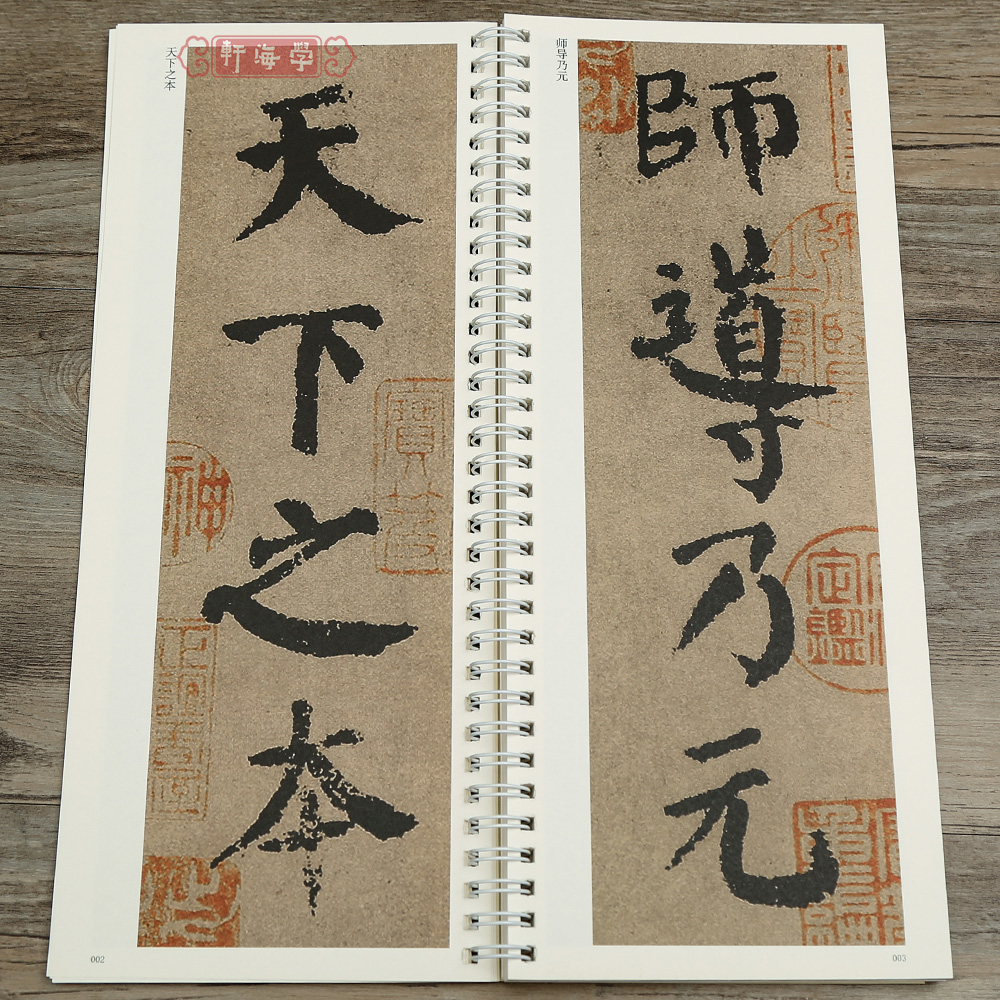 學海軒
天下之本
天下之本
神
002
师导乃元
師導乃元
定鑑
003